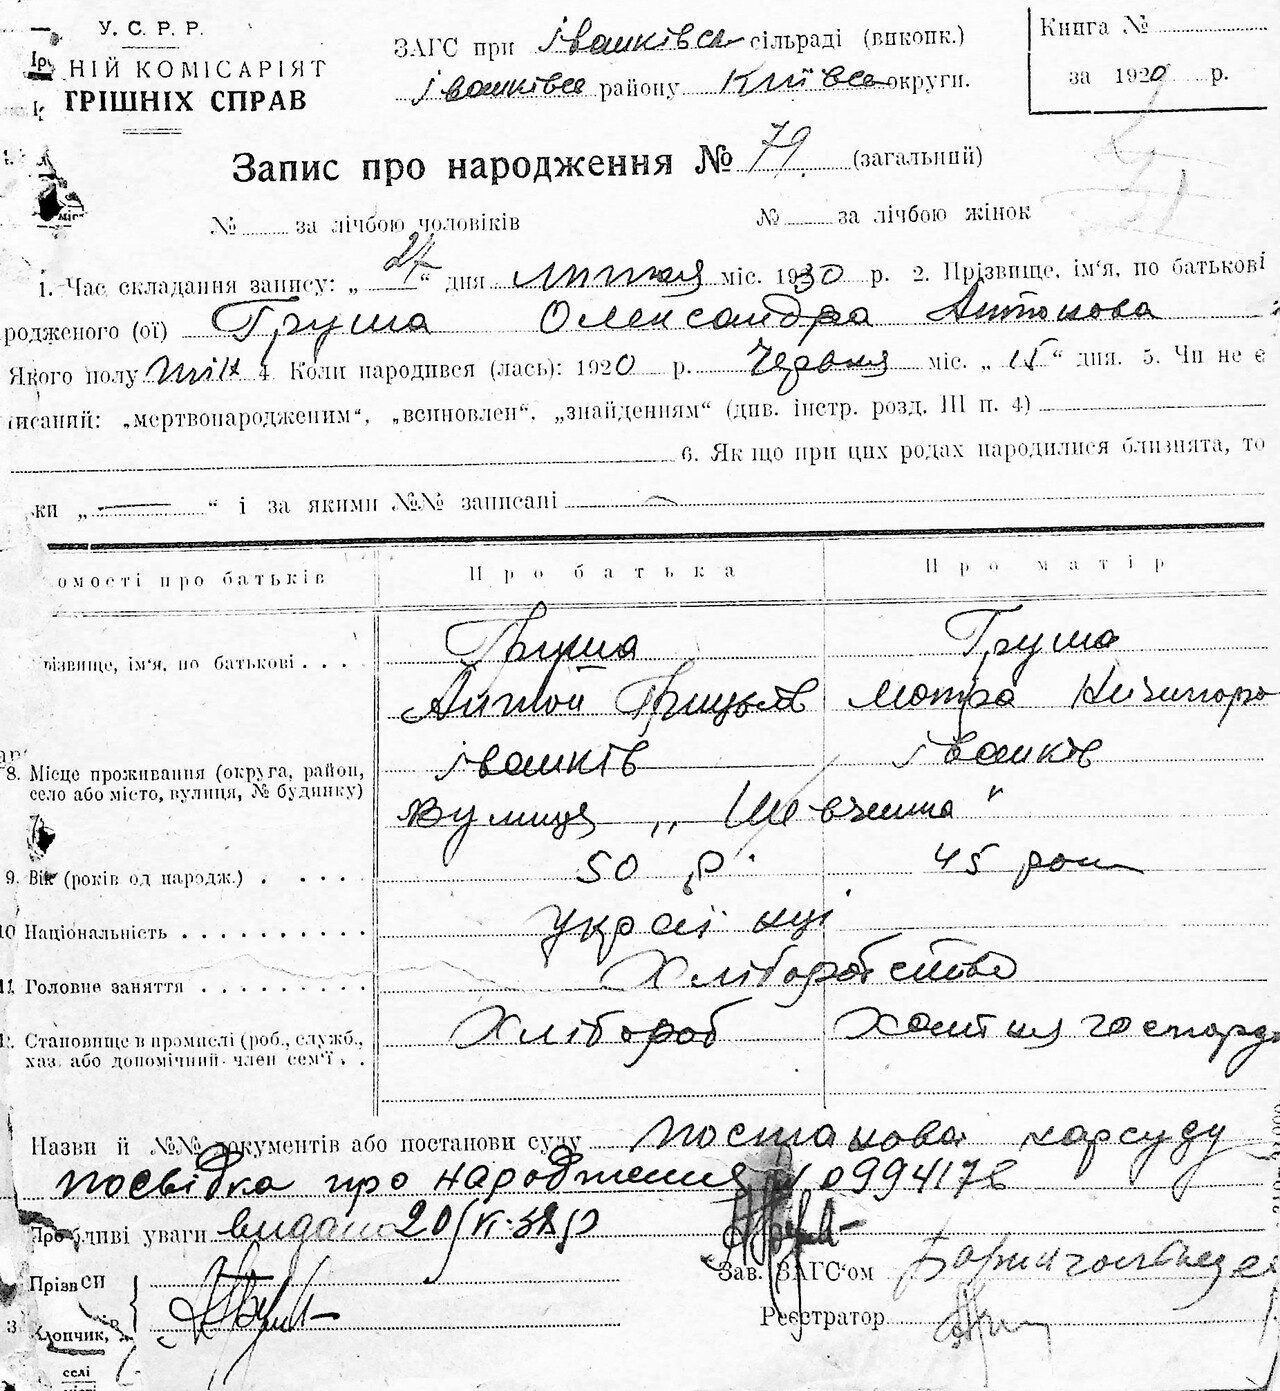 У. С. Р. Р.
НІЙ КОМІСАРІЯТ
ТРІШНІХ СПРАВ
ЗАГС при Іванківск сільраді (виконк.)
Іванківск району Київск округи.
Книга №
за 1920 р.
Запис про народження № 79 (загальний)
№ за лічбою чоловіків № за лічбою жінок
1. Час складання запису: „ 27 “ дня липня міс. 1930 р. 2. Прізвище, ім'я, по батькові
родженого (ої) Груша Олександра Антонова
Якого полу жін 4. Коли народився (лась): 1920 р. Червня міс. „ 15 “ дня. 5. Чи не є
писаний: „мертвонародженим“, „всиновлен“, „знайденням“ (див. інстр. розд. III п. 4)
6. Якщо при цих родах народилися близнята, то
ки „ — “ і за якими №№ записані
омості про батьків Про батька Про матір
різвище, ім'я, по батькові Груша Груша
Антон Грицьків Мотра Ничипоро
8. Місце проживання (округа, район, село або місто, вулиця, № будинку) Іванків Іванків
Вулиця „ Шевченка "
9. Вік (років од народж.) 50 р. 45 рок
10 Національність Україїнці
11. Головне заняття Хліборобство
Становище в промислі (роб., служб., хаз. або допомічний член сем'ї Хлібороб Хатня господ
Назви й №№ документів або постанови суду Постанова нарсуду
посвідка про народження № 0994176
Про б дливі уваги видано 20/VI-38 р
Зав. ЗАГС'ом
Прізв си
Реєстратор
Хлопчик,
селі